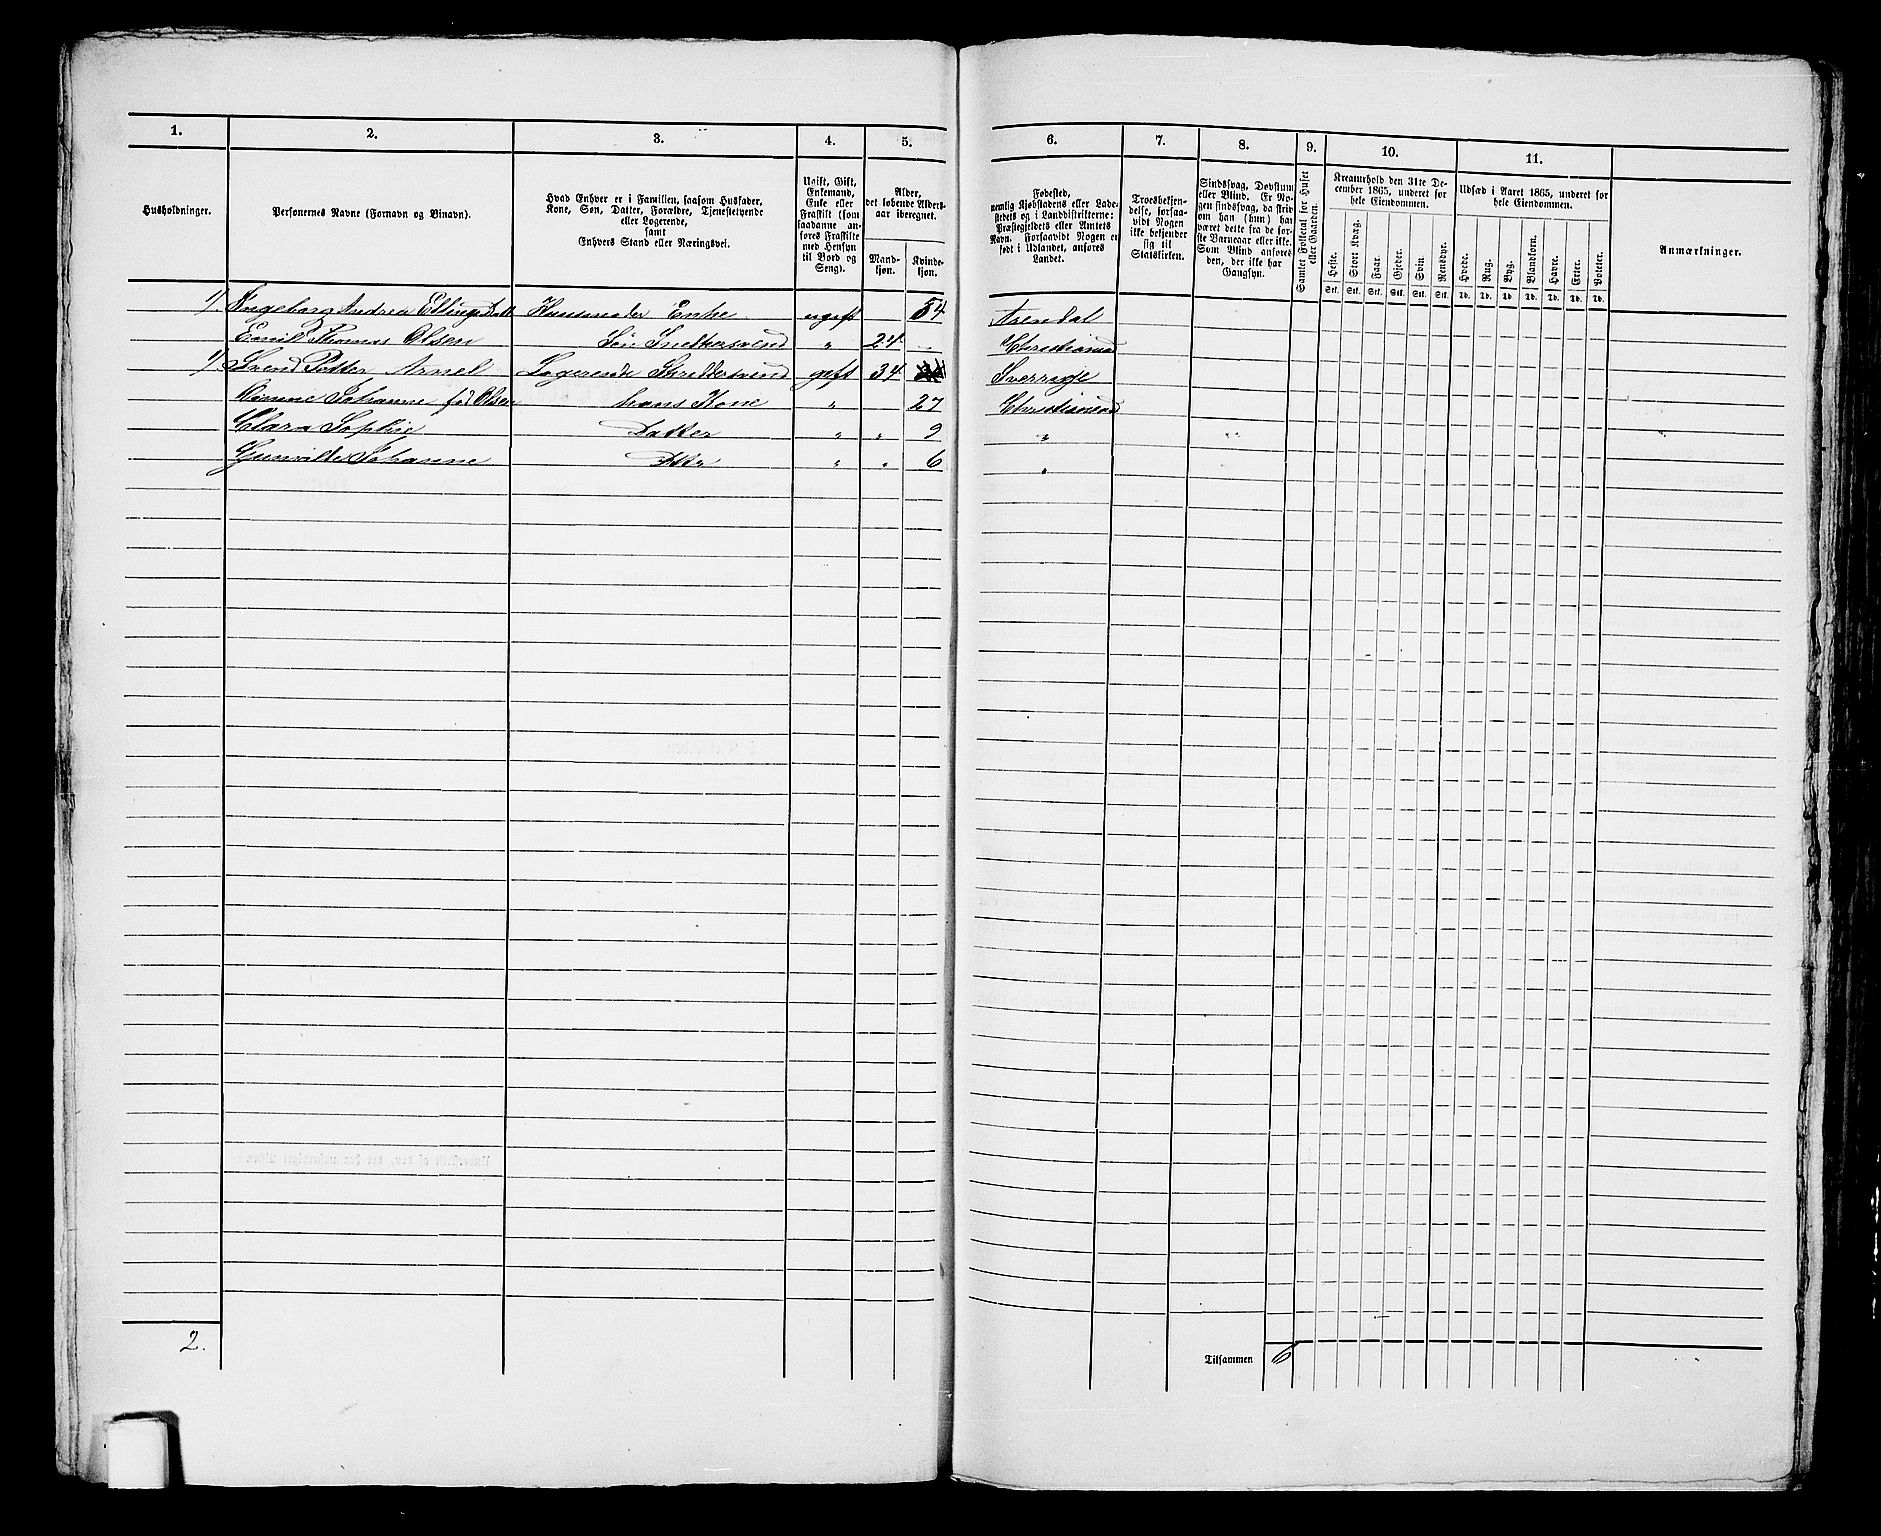 1. 2. 3. 4. 5. 6. 7. 8. 9. 10. 11.
Husholdninger.
Personernes Navne (Fornavn og Binavn).
Hvad Enhver er i Familien, saasom Husfader,
Kone, Søn, Datter, Forældre, Tjenestetyende
eller Logerende,
samt
Enhvers Stand eller Næringsvei.
Ugift, Gift,
Enkemand,
Enke eller
Fraskilt (som
saadanne an-
føres Fraskilte
med Hensyn
til Bord og
Seng).
Alder,
det løbende Alders-
aar iberegnet.
Mand-
kjøn.
Kvinde-
kjøn.
Fødested,
nemlig Kjøbstadens eller Lade-
stedets og i Landdistrikterne:
Præstegjeldets eller Amtets
Navn. Forsaavidt Nogen er
født i Udlandet, anføres
Landet.
Troesbekjen-
delse, forsaa-
vidt Nogen
ikke bekjender
sig til
Statskirken.
Sindssvag, Døvstum
eller Blind. Er No-
gen sindssvag, da skriv
om han (hun) har
været dette fra de før-
ste Barneaar eller ikke.
Som Blind anføres
den, der ikke har
Gangsyn.
Samlet Folketal for Huset
eller Gaarden.
Kreaturhold den 31te De-
cember 1865, underet for
hele Eiendommen.
Heste. Stort Kvæg. Faar. Gjeder. Svin. Rensdyr.
Stk. Stk. Stk. Stk. Stk. Stk.
Udsæd i Aaret 1865, underet for
hele Eiendommen.
Hvede. Rug. Byg. Blandkorn. Havre. Erter. Poteter.
Td. Td. Td. Td. Td. Td. Td.
Anmærkninger.
1/. Ingeborg Andrea Ellings Dtt Huusmoder Enke ugift 54 Arendal
Emil Thomas Olsen Søn Snedkersvend " 24 Christiansand
1/ Svend Petter Arnel Logerende Skreddersvend gift 34 Sverrige
Johanne fød Olsen hans Kone " 27 Christiansand
Clara Sophie Datter " " 9 "
Gunvilde Johanne Dttr " " 6 "
2.
Tilsammen 6